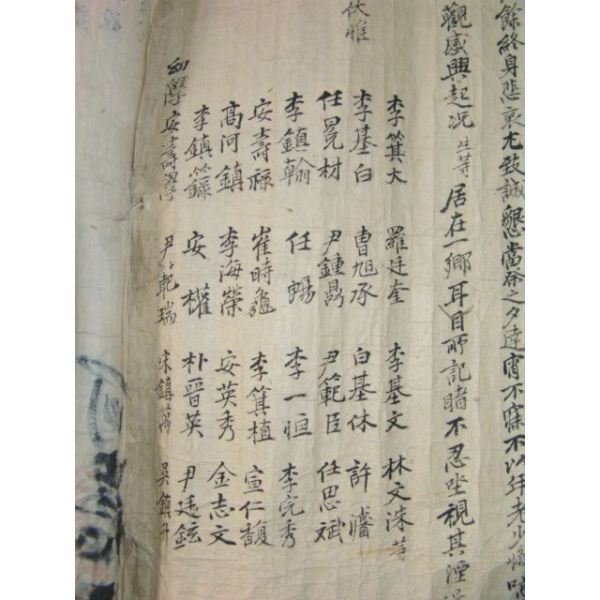 餘終身悲哀尤致誠懇當祭之夕達宵不寐不以年老少懈
觀感興起况生等居在一鄉耳目所記睹不忍坐視其湮
伏惟
李箕大 羅廷奎 李基文 林文洙等
李基白 曺旭承 白基休 許
任冕材 尹鍾鼎 尹範臣 任思斌
李鎭翰 任暢 李一恒 李完秀
安壽祿 崔時龜 李箕植 宣仁馥
高河鎭 李海榮 安英秀 金志文
李鎭 安權 朴晋英 尹廷鉉
幼學 安壽 尹範瑞 宋鎭萬 吳鎭升